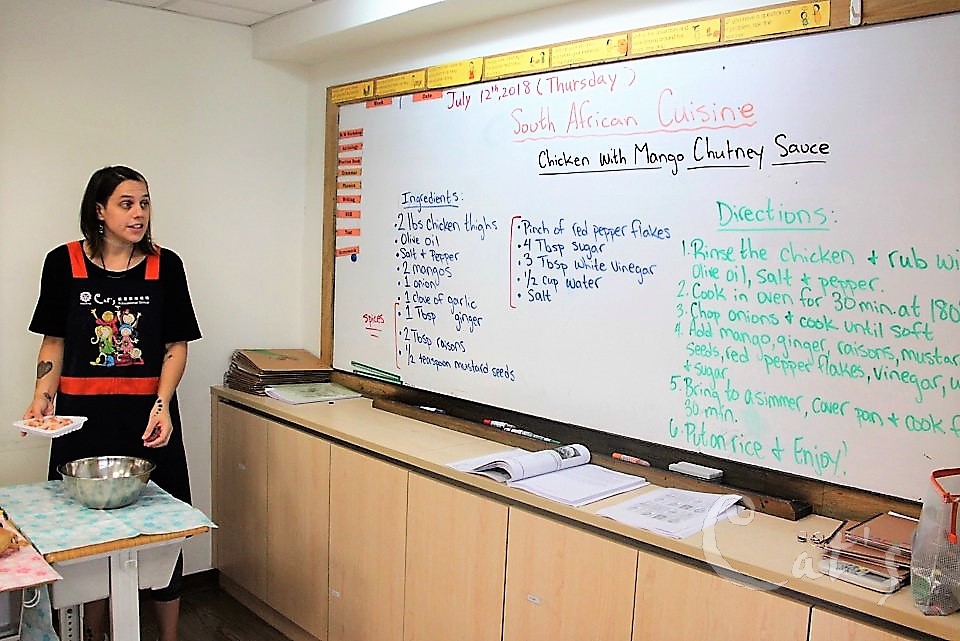 July 12th, 2018 (Thursday)
South African Cuisine
Chicken with Mango Chutney Sauce
Ingredients:
• 2 lbs chicken thighs
• Olive oil
• Salt & Pepper
• 2 mangos
• 1 onion
• 1 clove of garlic
spices
• 1 Tbsp ginger
• 2 Tbsp raisons
• 1/2 teaspoon mustard seeds
• Pinch of red pepper flakes
• 4 Tbsp sugar
• 3 Tbsp white vinegar
• 1/2 cup water
• Salt
Directions:
1. Rinse the chicken & rub wi
Olive oil, salt & pepper.
2. Cook in oven for 30 min. at 180
3. Chop onions & cook until soft
4. Add mango, ginger, raisons, mustar
seeds, red pepper flakes, vinegar, w
& sugar
5. Bring to a simmer, cover pan & cook f
30 min.
6. Put on rice & Enjoy!